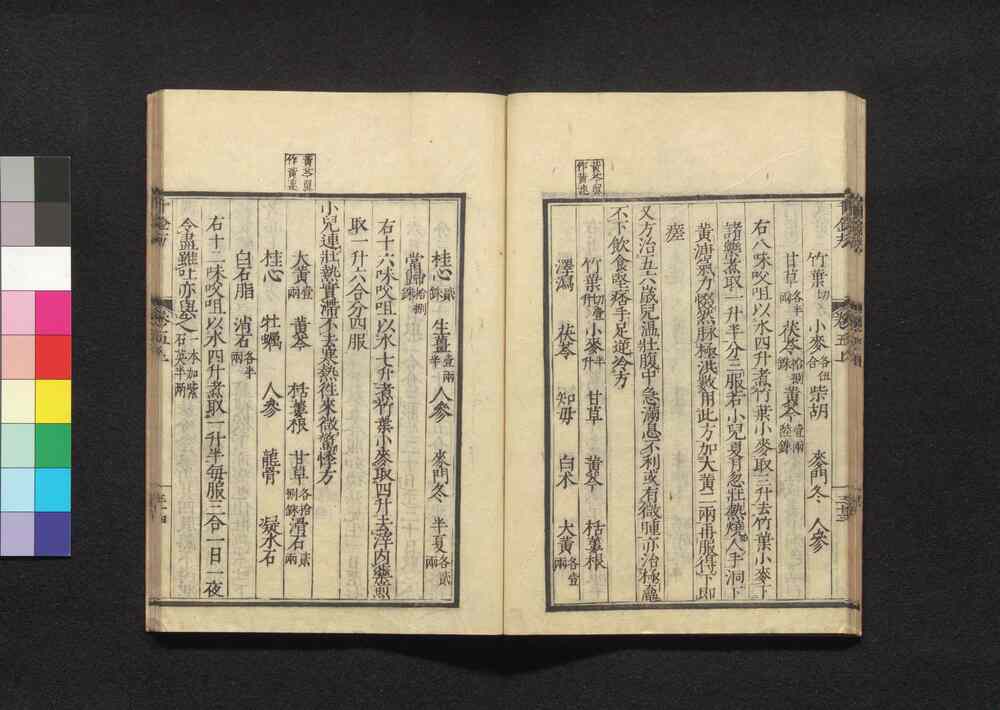 黃芩與
作黃連
竹葉切 小麥各伍合 柴胡 麥門冬 人參
甘草各半兩 茯苓拾捌銖 黃芩壹兩陸銖
右八味㕮咀以水四升煮竹葉小麥取三升去竹葉小麥下
諸藥煮取一升半分三服若小兒夏月忽壯熱燒人手洞下
黃溏氣力惙然脉極洪數用此方加大黃二兩再服得下即
瘥
又方治五六歲兒溫壯腹中急滿息不利或有微腫亦治極羸
不下飲食堅痞手足逆冷方
竹葉切壹升 小麥半升 甘草 黃芩 栝蔞根
澤瀉 茯苓 知母 白术 大黃各壹兩
卷五上
黃芩與
作黃連
桂心貳銖 生薑壹兩半 人參 麥門冬 半夏各貳兩
當歸拾捌銖
右十六味㕮咀以水七升煮竹葉小麥取四升去滓內藥煎
取一升六合分四服
小兒連壯熱實滯不去寒熱往來微驚悸方
大黃壹兩 黃芩 栝蔞根 甘草各拾捌銖 滑石貳兩
桂心 牡蠣 人參 龍骨 凝水石
白石脂 消石各半兩
右十二味㕮咀以水四升煮取一升半每服三合一日一夜
令盡雖吐亦與之一本加紫石英半兩